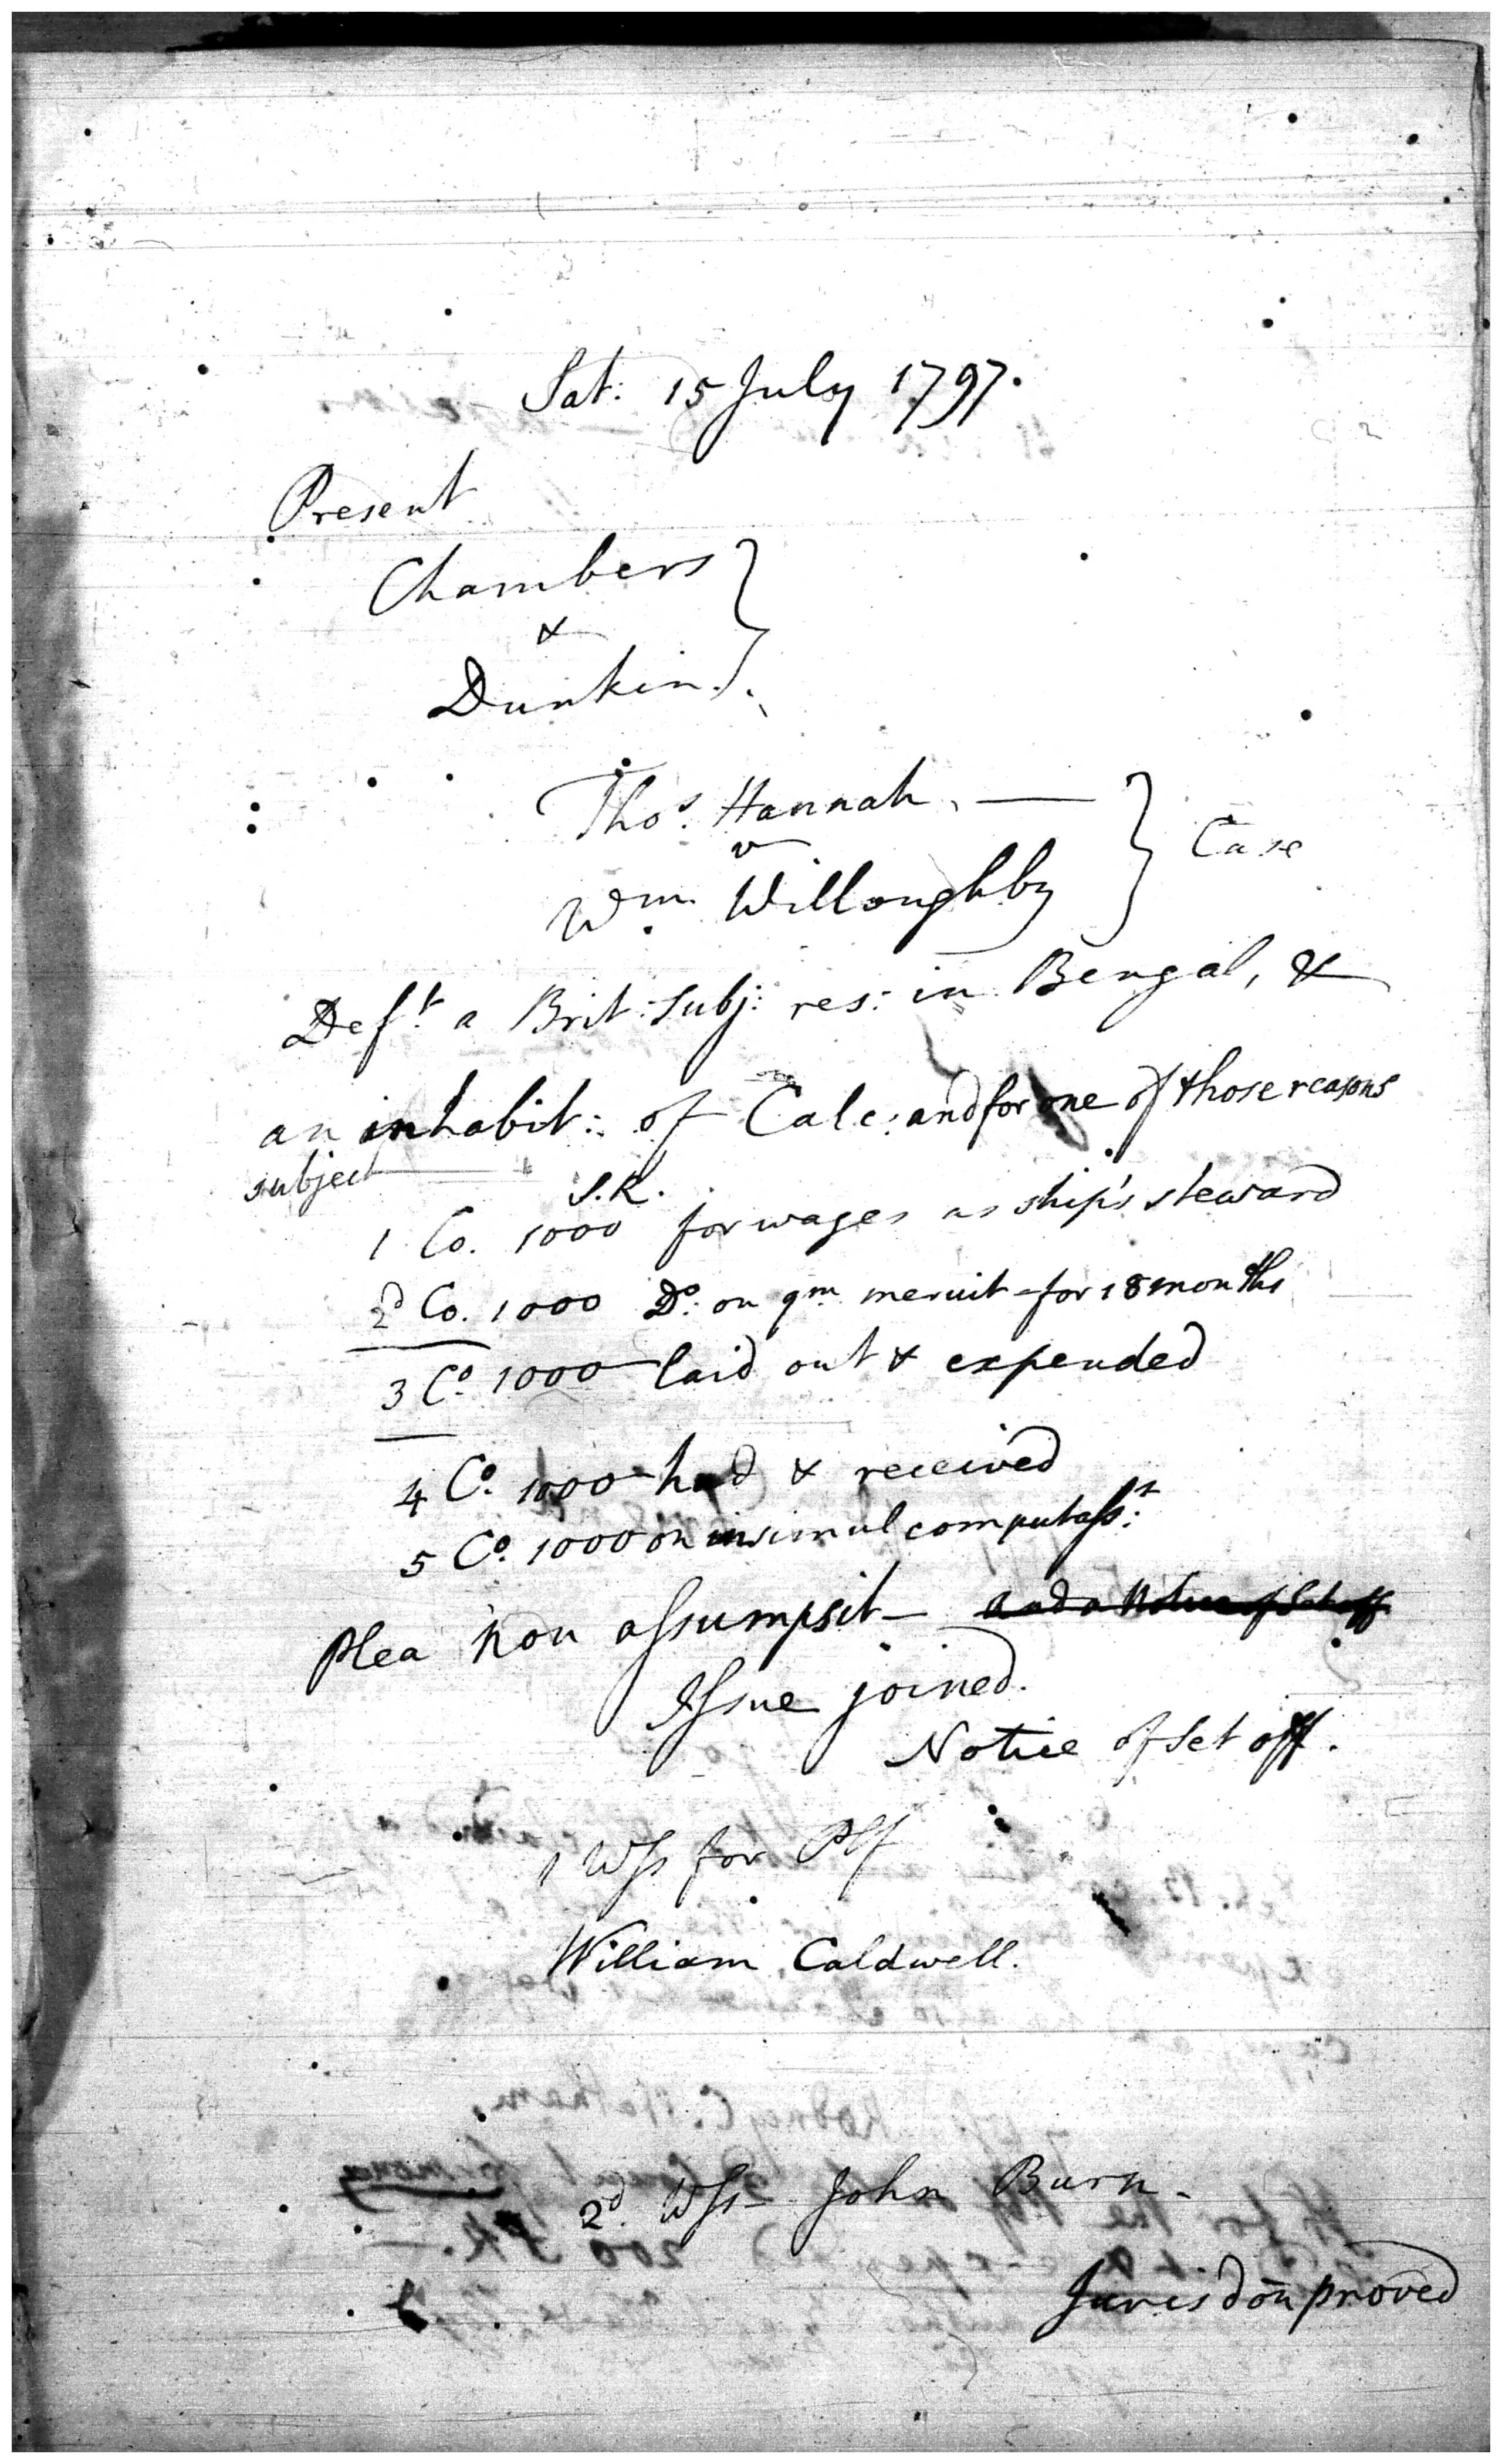 Sat: 15 July 1797.
Present
Chambers
&
Dunkin.
Thos. Hannah. —
v
Wm. Willoughby } Case
Deft. a Brit: Subj: res: in Bengal, &
an inhabit: of Calc: and for one of those reasons
subject
S.R.
1 Co. 1000 for wages as ship's steward
2d Co. 1000 Do. on qm. meruit - for 18 months
3 Co. 1000 laid out & expended
4 Co. 1000 had & received
5 Co. 1000 on insimul computasst.
Plea Non assumpsit — and a Notice of Set off
Issue joined.
Notice of Set off.
1 Wss for Plf
William Caldwell.
2d. Wss — John Burn.
Jurisdon proved